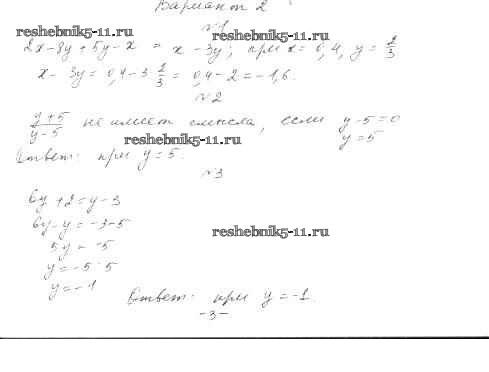 Вариант 2
№1
reshebnik5-11.ru reshebnik5-11.ru
2x-8y+5y-x = x-3y; при x=0,4, y=2/3
x-3y=0,4-3·2/3=0,4-2=-1,6.
№2
y+5/y-5 не имеет смысла, если y-5=0
y=5
reshebnik5-11.ru
Ответ: при y=5.
№3
6y+2=y-3
6y-y=-3-5
reshebnik5-11.ru
5y=-5
y=-5:5
y=-1
Ответ: при y=-1.
-3-